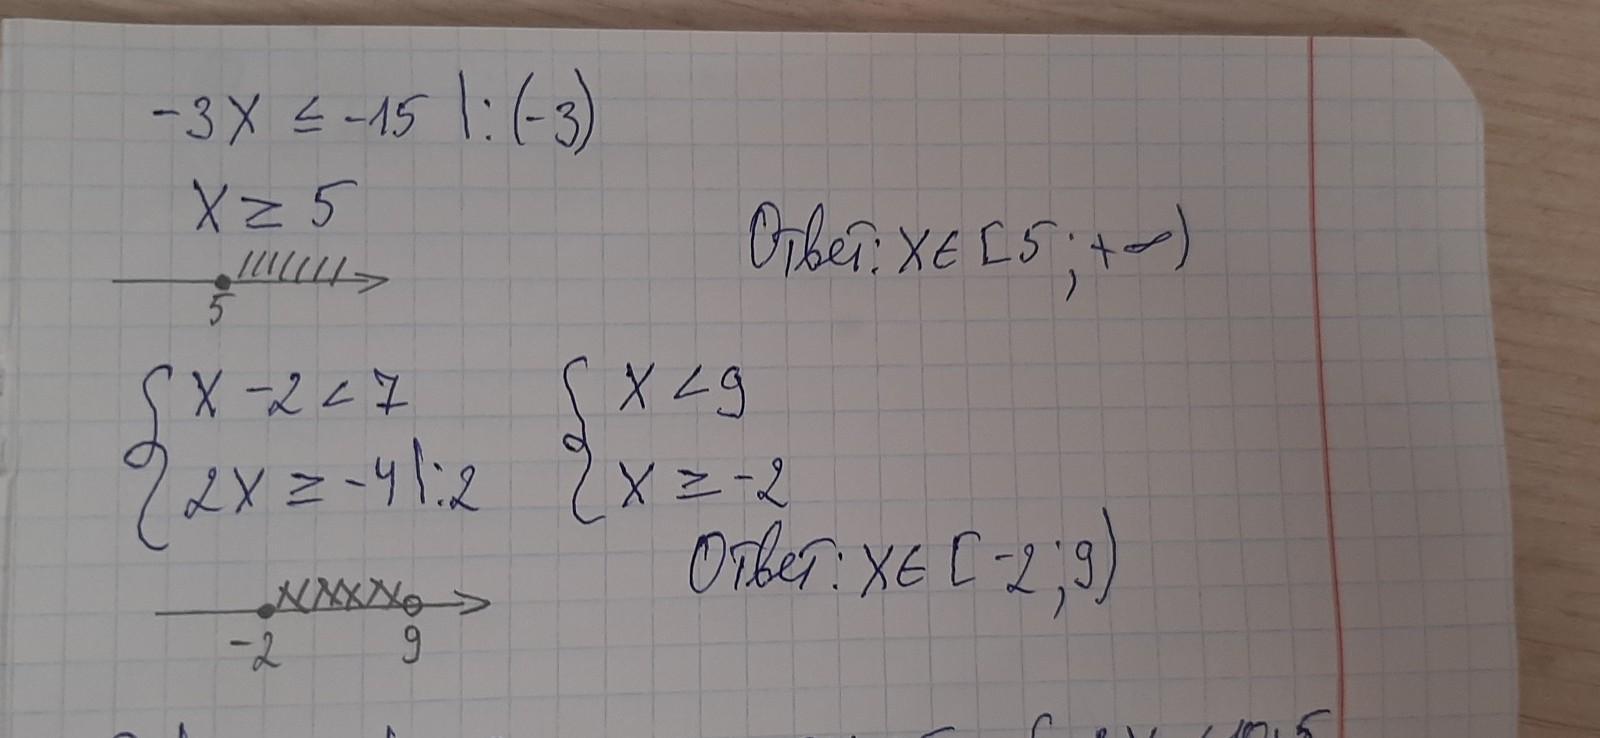 -3x ≤ -15 |:(-3)
x ≥ 5
Ответ: x∈[5;+∞)
5
{ x - 2 < 7 { x < 9
{ 2x ≥ -4 |:2 { x ≥ -2
Ответ: x∈[-2;9)
-2 9